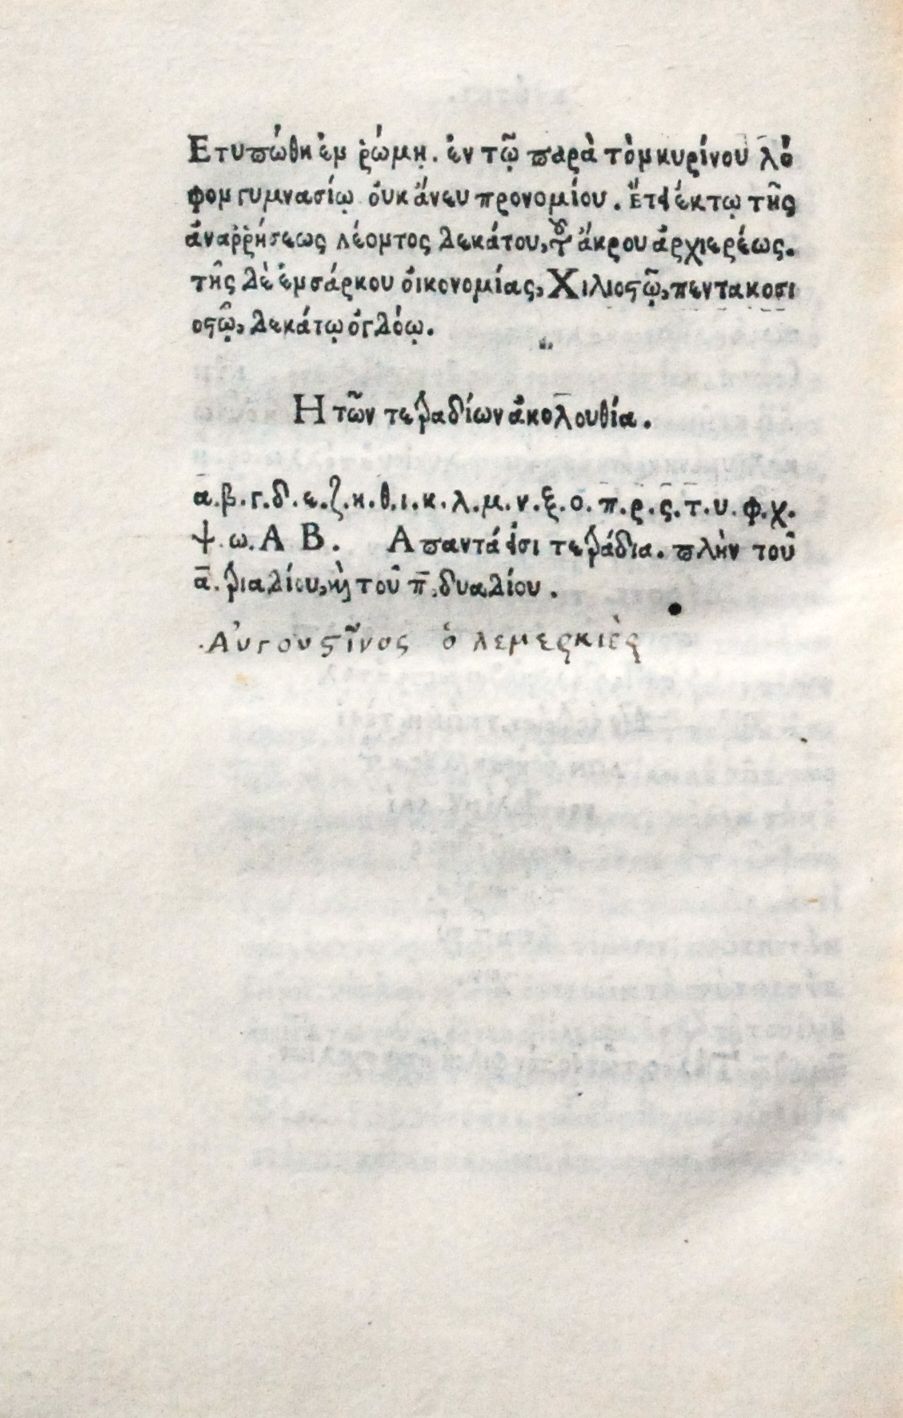 Ετυπώθη ἐμ ῥώμῃ. ἐν τῷ παρὰ τὸμ κυρίνου λό
φομ γυμνασίῳ οὐκ ἄνευ προνομίου. ἔτει ἑκτῳ τῆς
ἀναῤῥήσεως λέομτος δεκάτου, τοῦ ἄκρου ἀρχιερέως.
τῆς δὲ ἐμσάρκου οἰκονομίας, Χιλιοϛῷ, πεντακοσι
οϛῷ, δεκάτῳ ὀγδόῳ.
Η τῶν τεῤαδίων ἀκολουθία.
α.β.γ.δ.ε.ζ.η.θ.ι.κ.λ.μ.ν.ξ.ο.π.ρ.ς.τ.υ.φ.χ.
ψ.ω.Α Β. Απαντά εἰσι τεῤάδια. πλὴν τοῦ
α̅. ῤιαδίου, καὶ τοῦ π̅. δυαδίου.
·Αὐγουϛῖνος ὁ λεμεςκιὲς